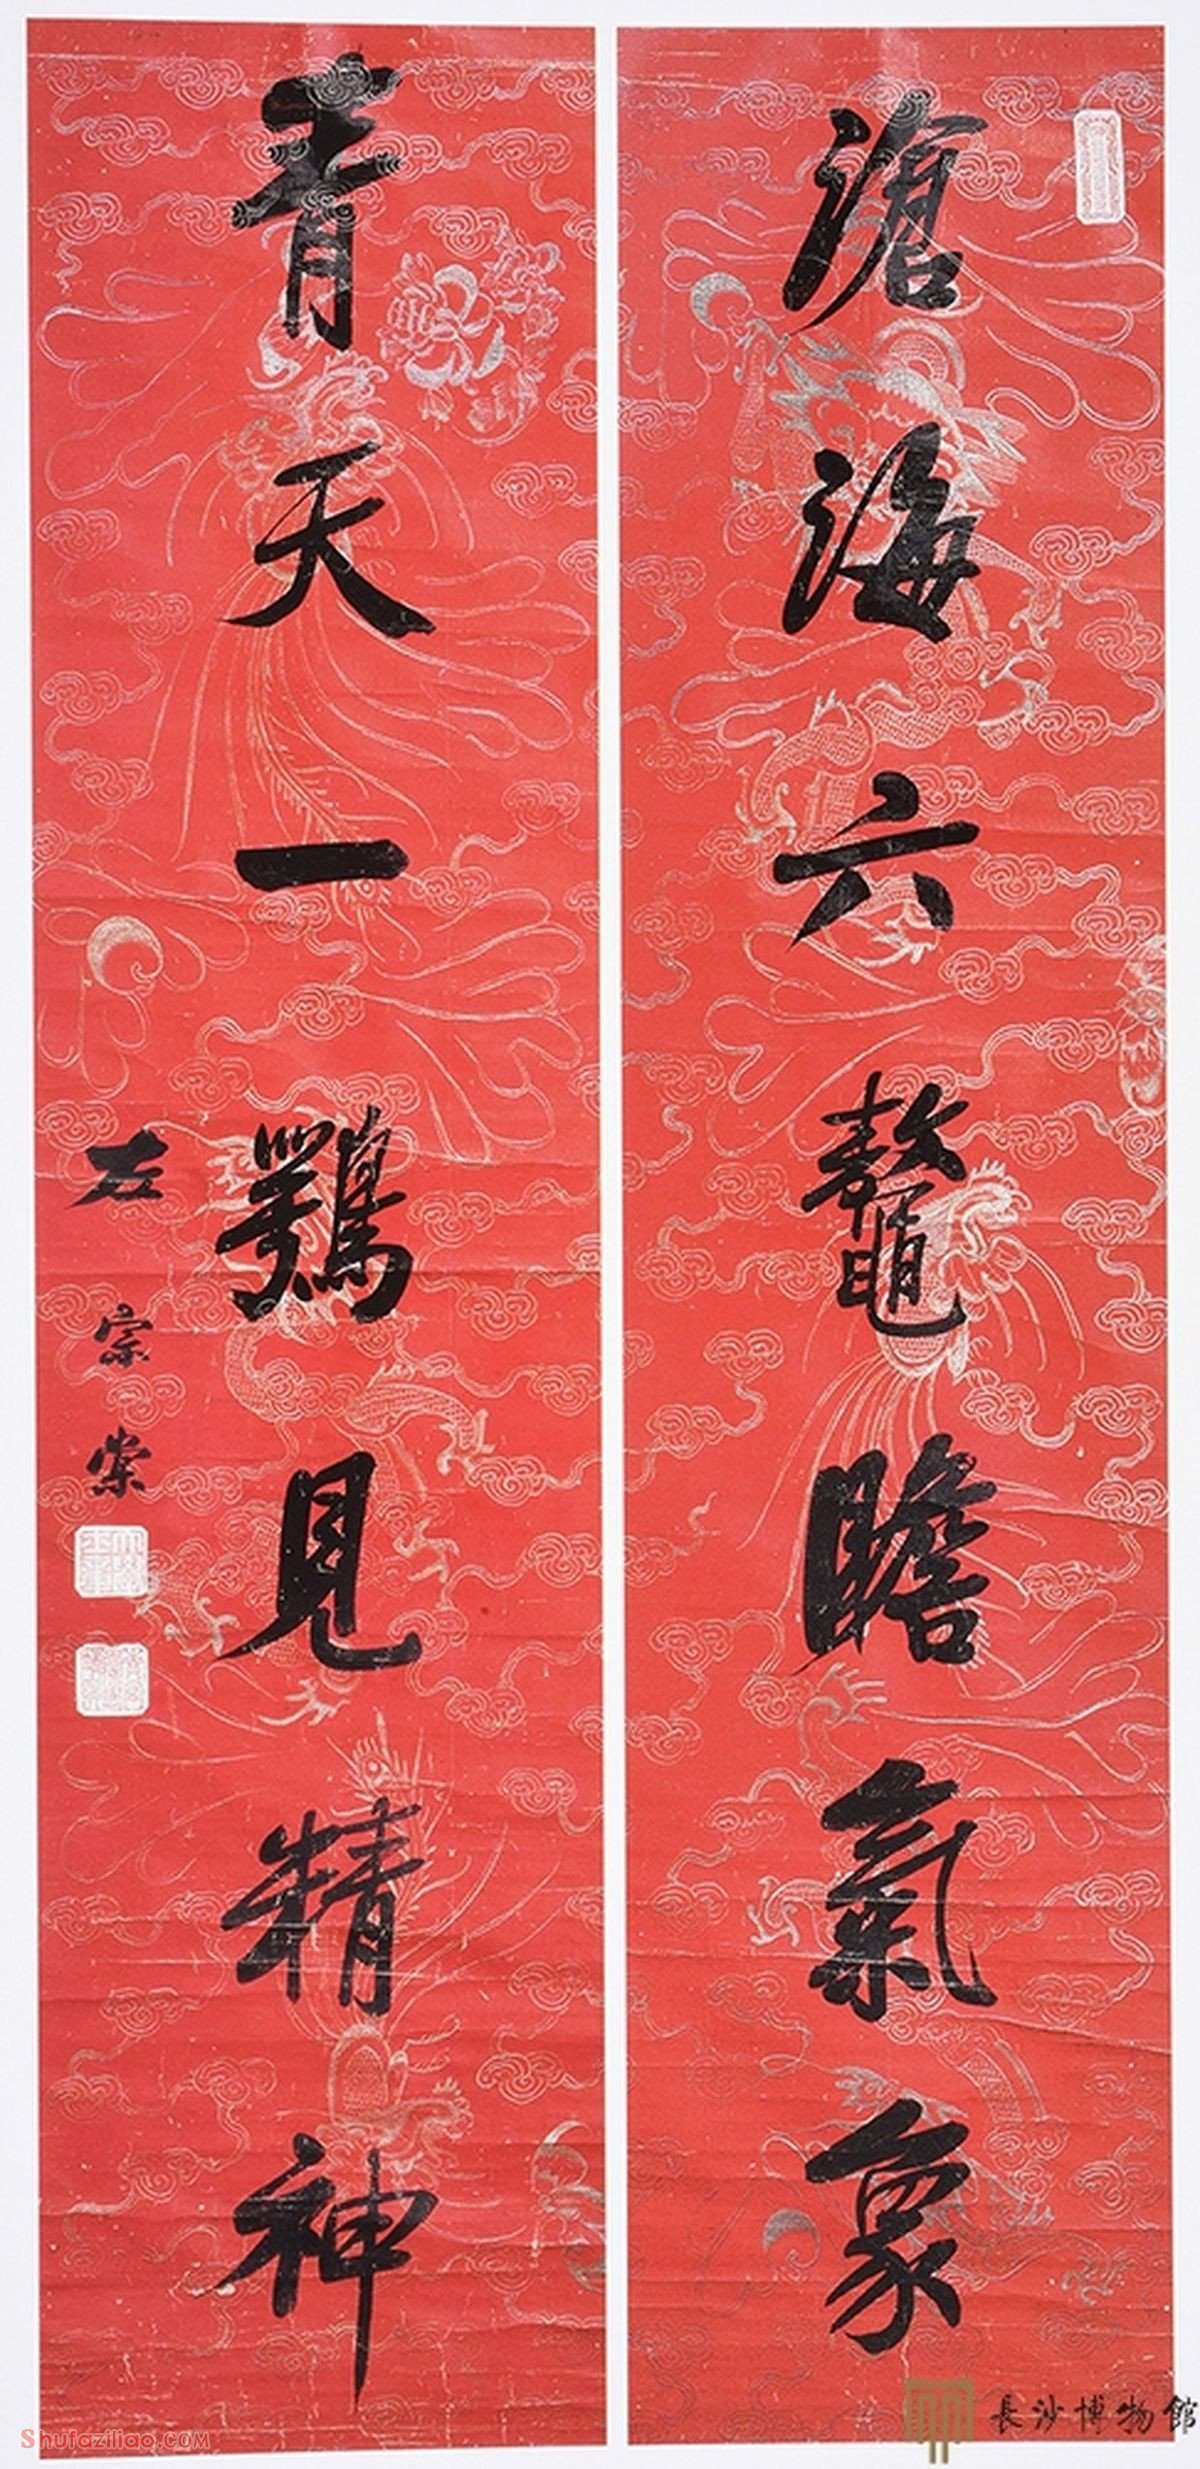 滄海六鼇瞻氣象
青天一鶚見精神
左宗棠
長沙博物館
Shufaziliao.com